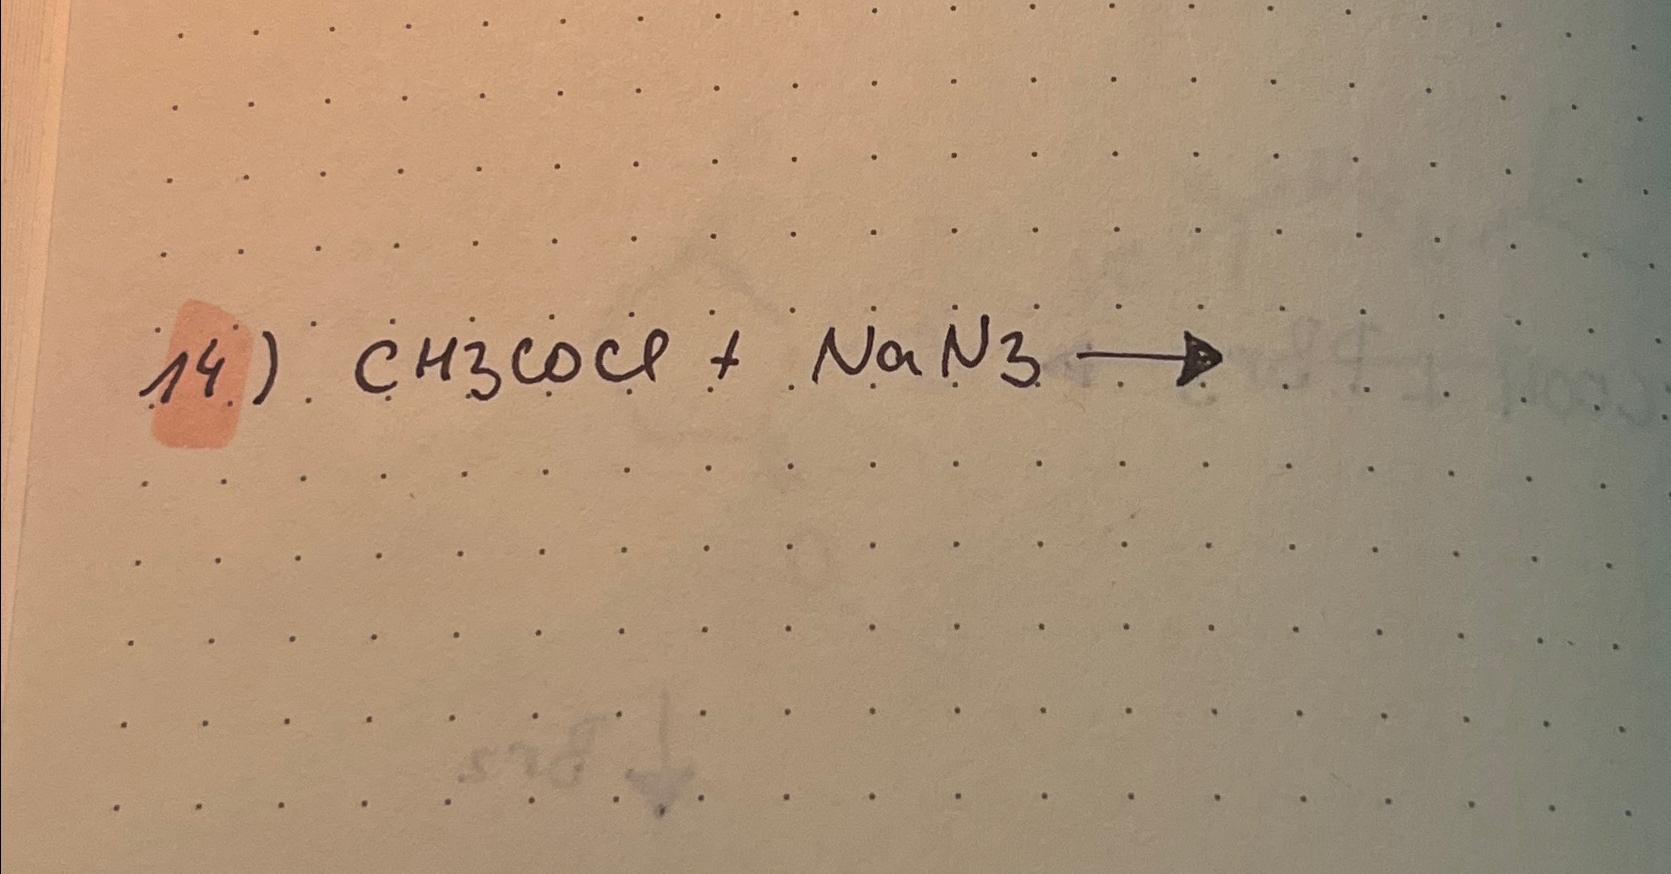 14) CH3COCl + NaN3 →
Br2